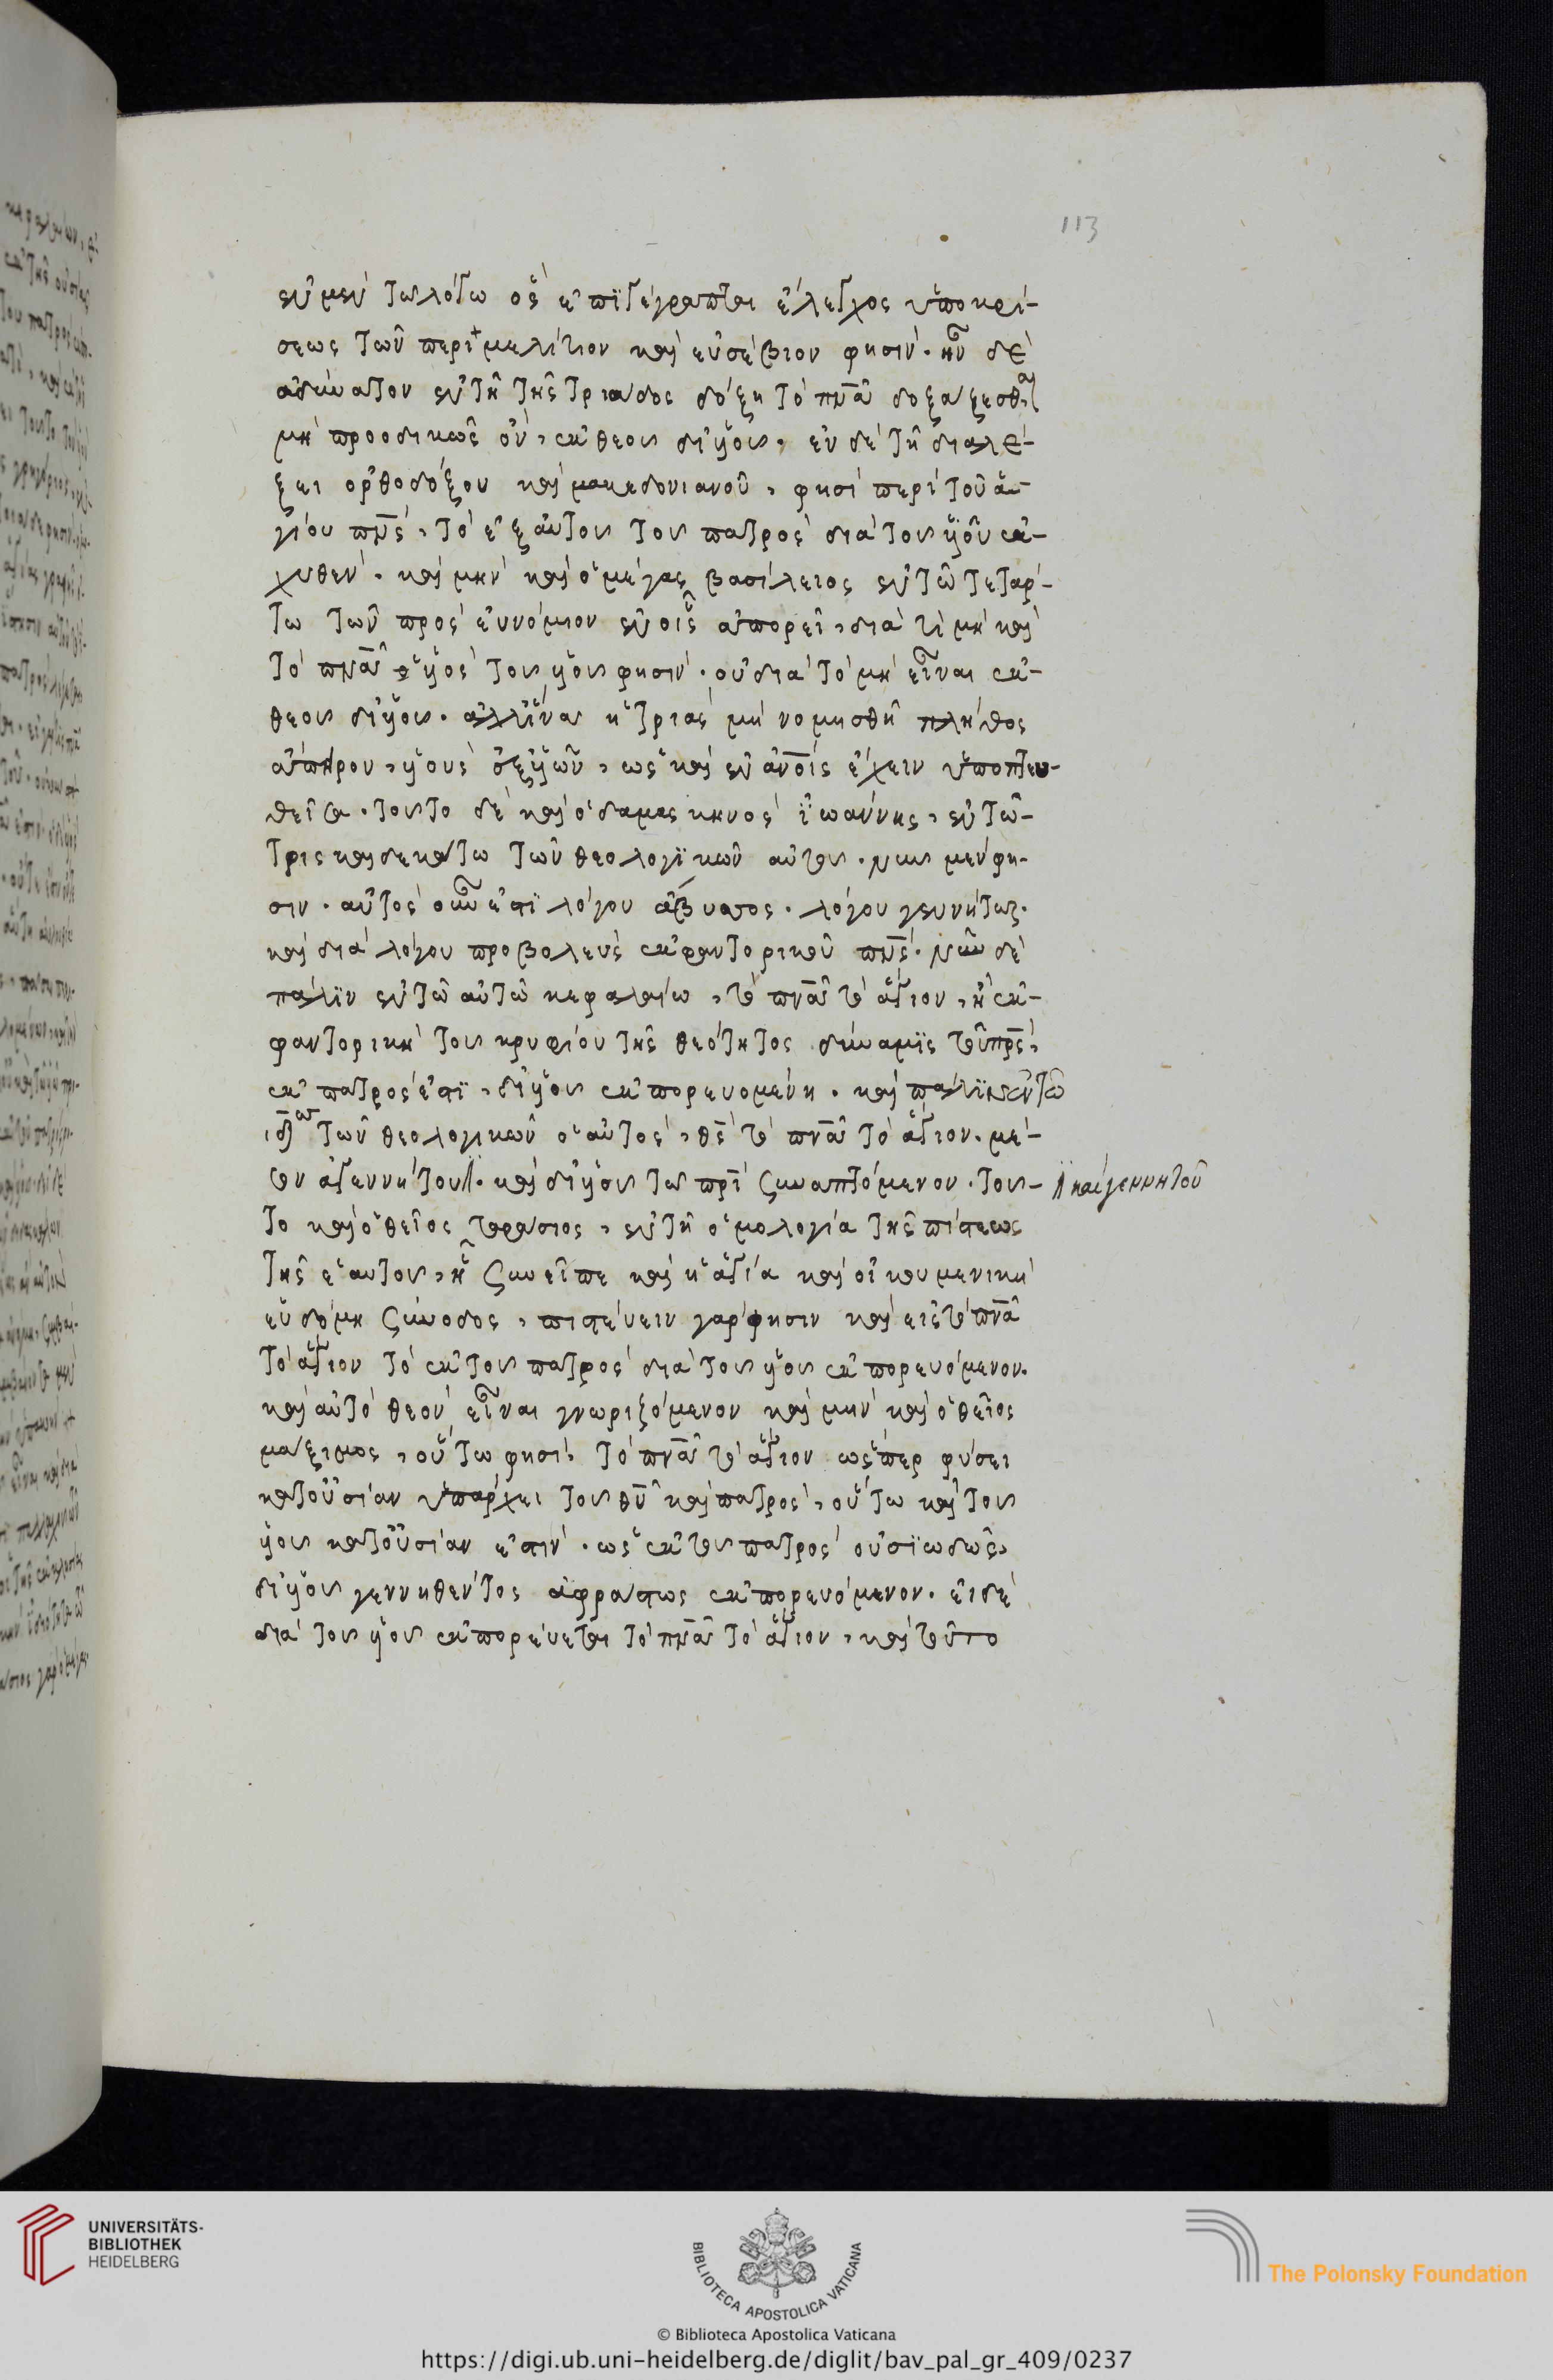 113
ἐν μὲν τῶ λόγω ὃς ἐπιγέγραπται ἔλεγχος ὑποκρί-
σεως τῶν περὶ μελίτιον καὶ εὐσέβιον φησίν. ἦν δὲ
ἀδύνατον ἐν τῆ τῆς τριάδος δόξη τὸ πνᾶ δοξάζεσθαι
μὴ προοδικῶς ὂν, ἐκ θεοῦ δι' υἱοῦ, ἐν δὲ τῆ διαλέ-
ξει ὀρθοδόξου καὶ μακεδονιανοῦ, φησὶ περὶ τοῦ ἁ-
γίου πνς, τὸ ἐξ αὐτοῦ τοῦ πατρὸς διὰ τοῦ υἱοῦ ἐκ-
χυθέν. καὶ μὴν καὶ ὁ μέγας βασίλειος ἐν τῶ τετάρ-
τω τῶν πρὸς εὐνόμιον ἐν οἷς ἀπορεῖ, διὰ τί μὴ καὶ
τὸ πνᾶ υἱὸς τοῦ υἱοῦ φησίν. οὐ διὰ τὸ μὴ εἶναι ἐκ
θεοῦ δι' υἱοῦ. ἀλλ' ἵνα ἡ τριὰς μὴ νομισθῆ πλῆθος
ἄπειρον, υἱοὺς ἐξ υἱῶν, ὡς καὶ ἐν ἀνοις ἔχειν ὑποπτευ-
θεῖσα. τοῦτο δὲ καὶ ὁ δαμασκηνὸς ἰωάννης, ἐν τῶ
τρισκαιδεκάτω τῶν θεολογικῶν αὐτοῦ. νοῦς μὲν φη-
σιν. αὐτὸς οὖν ἐστὶ λόγου ἄβυσσος. λόγου γεννήτωρ.
καὶ διὰ λόγου προβολεὺς ἐκφαντορικοῦ πνς. νῦν δὲ
πάλιν ἐν τῶ αὐτῶ κεφαλαίω, τὸ πνᾶ τὸ ἅγιον, ἡ ἐκ-
φαντορικὴ τοῦ κρυφίου τῆς θεότητος δύναμις τοῦ πρς,
ἐκ πατρὸς ἐστι, δι' υἱοῦ ἐκπορευομένη. καὶ πάλιν ἐν τῶ
ιδω τῶν θεολογικῶν ὁ αὐτὸς, θς τὸ πνᾶ τὸ ἅγιον. μέ-
σον ἀγεννήτου. καὶ δι' υἱοῦ τῶ πρι συναπτόμενον. τοῦ-
καὶ γεννητοῦ
το καὶ ὁ θεῖος ταράσιος, ἐν τῆ ὁμολογία τῆς πίστεως
τῆς ἑαυτοῦ, ἧ συνεῖπε καὶ ἡ ἁγία καὶ οἰκουμενικὴ
ἑυδόμη σύνοδος, πιστεύειν γάρ φησιν καὶ εἰς τὸ πνᾶ
τὸ ἅγιον τὸ ἐκ τοῦ πατρὸς διὰ τοῦ υἱοῦ ἐκπορευόμενον.
καὶ αὐτὸ θεὸν εἶναι γνωριζόμενον καὶ μὴν καὶ ὁ θεῖος
μάξιμος, οὕτω φησί. τὸ πνᾶ τὸ ἅγιον ὥσπερ φύσει
κατ' οὐσίαν ὑπάρχει τοῦ θυ καὶ πατρὸς, οὕτω καὶ τοῦ
υἱοῦ κατ' οὐσίαν ἐστιν. ὡς ἐκ τοῦ πατρὸς οὐσιωδῶς,
δι' υἱοῦ γεννηθέντος ἀφράστως ἐκπορευόμενον. εἰ δὲ
διὰ τοῦ υἱοῦ ἐκπορεύεται τὸ πνᾶ τὸ ἅγιον, καὶ τοῦτο
UNIVERSITÄTS-
BIBLIOTHEK
HEIDELBERG
BIBLIOTECA APOSTOLICA VATICANA
The Polonsky Foundation
© Biblioteca Apostolica Vaticana
https://digi.ub.uni-heidelberg.de/diglit/bav_pal_gr_409/0237